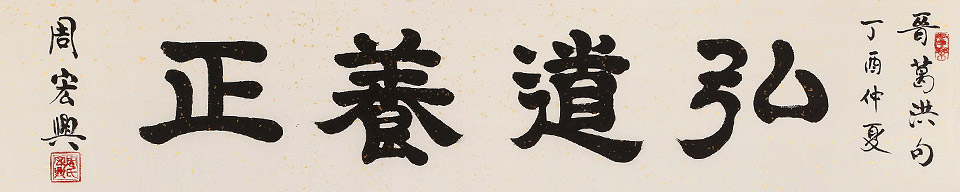 晉葛洪句
丁酉仲夏
弘道養正
周宏興